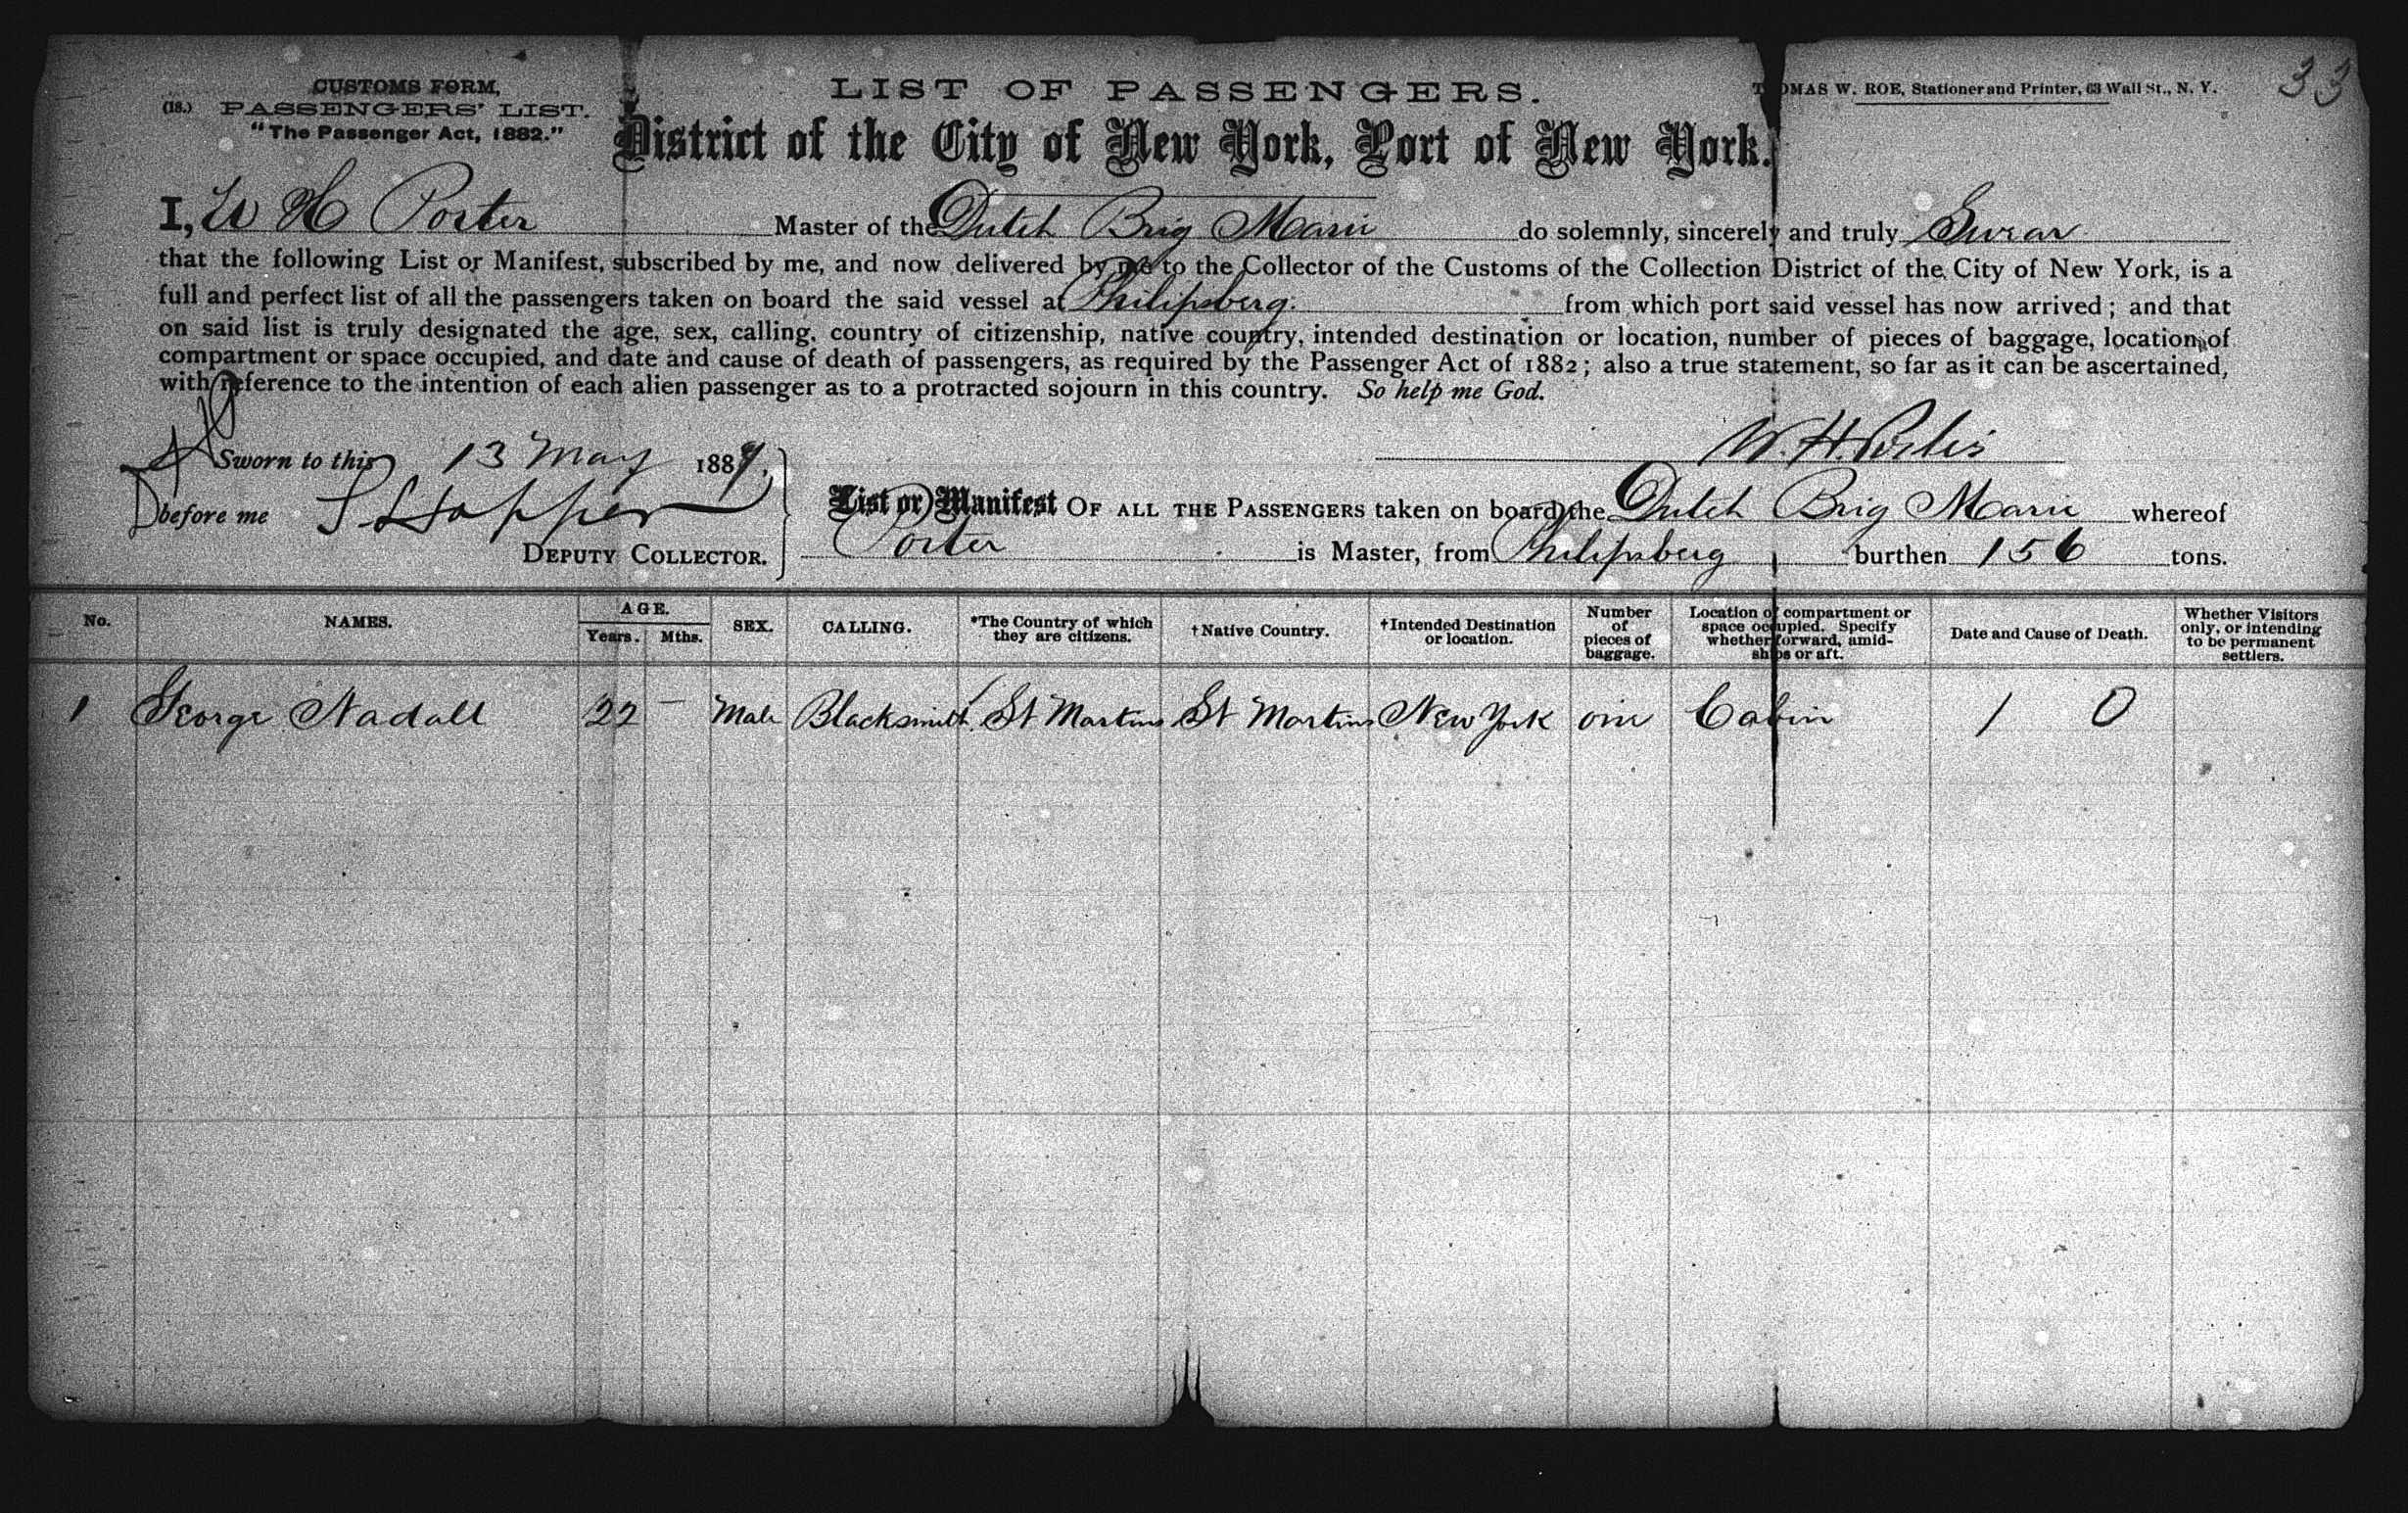 CUSTOMS FORM,
(18.) PASSENGERS' LIST.
"The Passenger Act, 1882."
LIST OF PASSENGERS.
THOMAS W. ROE, Stationer and Printer, 63 Wall St., N. Y.
33
District of the City of New York, Port of New York.
I, W H Porter Master of the Dutch Brig Marie do solemnly, sincerely and truly Swear
that the following List or Manifest, subscribed by me, and now delivered by me to the Collector of the Customs of the Collection District of the City of New York, is a
full and perfect list of all the passengers taken on board the said vessel at Philipsberg. from which port said vessel has now arrived; and that
on said list is truly designated the age, sex, calling, country of citizenship, native country, intended destination or location, number of pieces of baggage, location of
compartment or space occupied, and date and cause of death of passengers, as required by the Passenger Act of 1882; also a true statement, so far as it can be ascertained,
with reference to the intention of each alien passenger as to a protracted sojourn in this country. So help me God.
W. H. Porter
Sworn to this 13 May 1889,
before me S Hopper
DEPUTY COLLECTOR.
List or Manifest OF ALL THE PASSENGERS taken on board the Dutch Brig Marie whereof
Porter is Master, from Philipsberg burthen 156 tons.
No. NAMES. AGE. Years. Mths. SEX. CALLING. *The Country of which they are citizens. †Native Country. †Intended Destination or location. Number of pieces of baggage. Location of compartment or space occupied. Specify whether forward, amidships or aft. Date and Cause of Death. Whether Visitors only, or intending to be permanent settlers.
1 George Nadall 22 — Male Blacksmith St Martins St Martins New York one Cabin 1 0